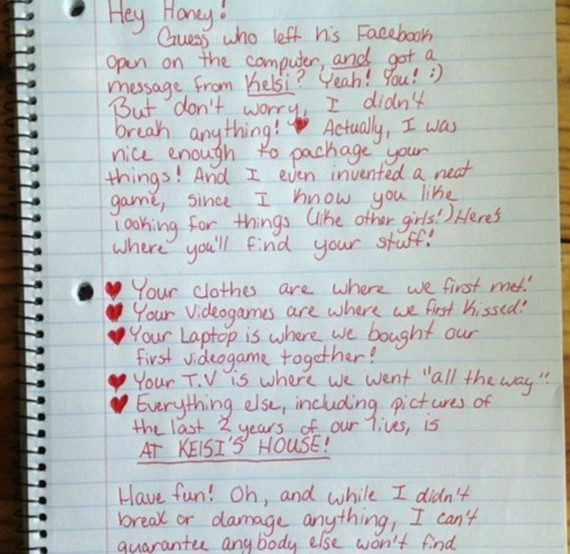 Hey Honey!
Guess who left his Facebook
open on the computer, and got a
message from Kelsi? Yeah! You! :)
But don't worry, I didn't
break anything! ♥ Actually, I was
nice enough to package your
things! And I even invented a neat
game, since I know you like
looking for things (like other girls!) Here's
where you'll find your stuff!
♥ Your clothes are where we first met!
♥ Your Videogames are where we first kissed!
♥ Your Laptop is where we bought our
first videogame together!
♥ Your T.V is where we went "all the way"!
♥ Everything else, including pictures of
the last 2 years of our lives, is
AT KELSI'S HOUSE!
Have fun! Oh, and while I didn't
break or damage anything, I can't
guarantee anybody else won't find